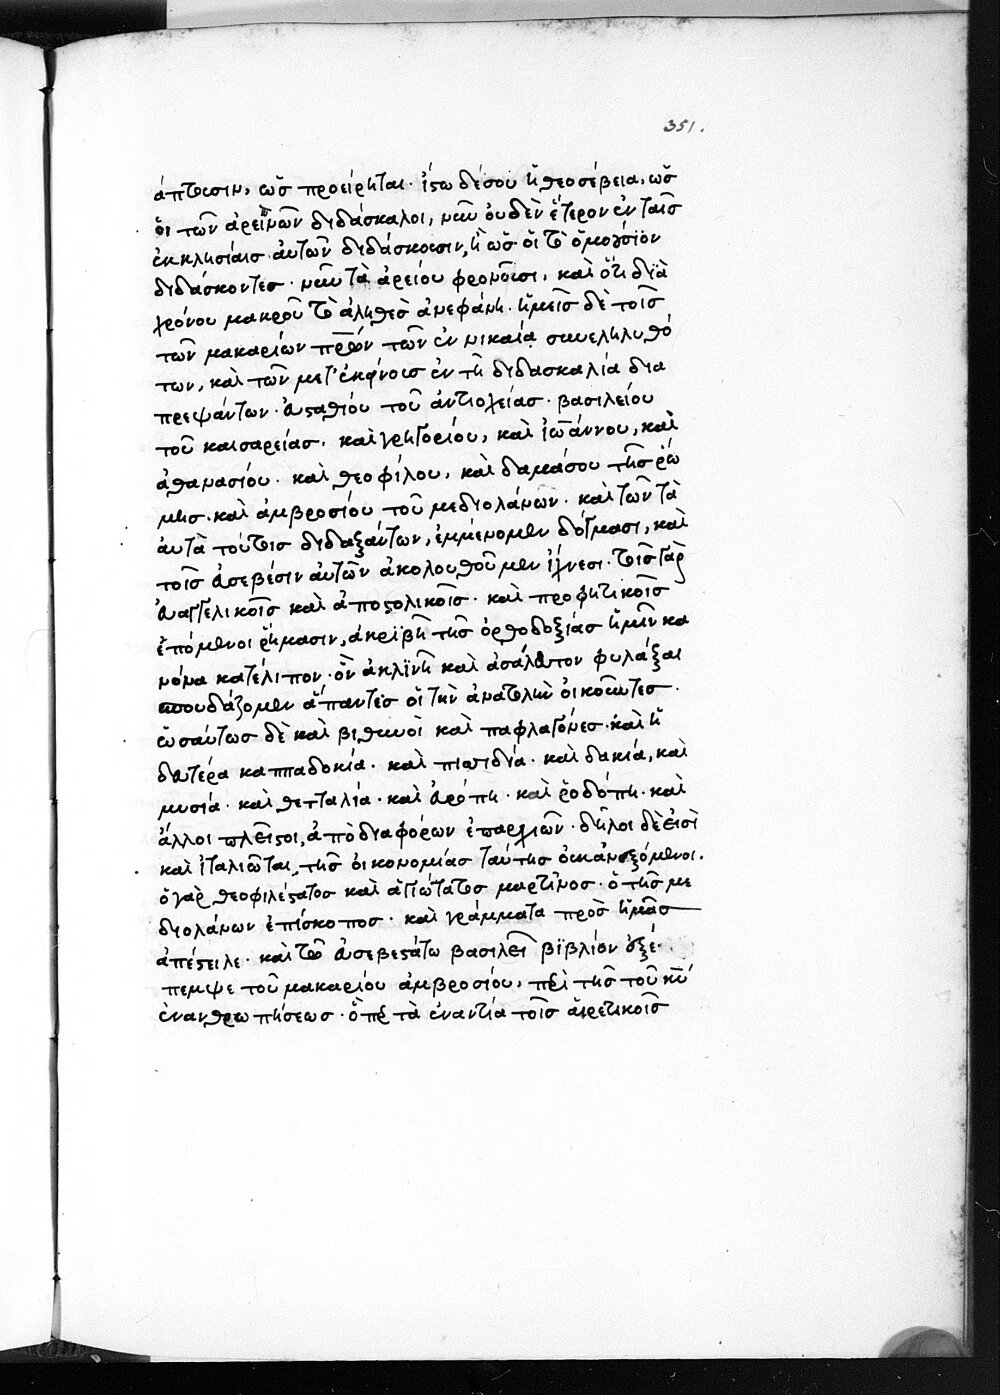 351.
άπτουσιν, ὡς προείρηται. ἴστω δέσου ἡ θεοσέβεια, ὡς
ὅι τῶν ἀρειανῶν διδάσκαλοι, νῦν ὀυδὲν ἕτερον ἐν ταῖς
ἐκκλησίαις ἀυτῶν διδάσκουσιν, ἢ ὡς ὅι τὸ ὁμοούσϊον
διδάσκοντες. νῦν τὰ ἀρείου φρονοῦσι. καὶ ὅτι διὰ
χρόνου μακροῦ τὸ ἀληθὲς ἀνεφάνη. ἡμεῖς δὲ τοῖς
τῶν μακαρίων πρων τῶν ἐν νικαία συνεληλυθό
των, καὶ τῶν μετ' ἐκείνους ἐν τῆ διδασκαλία δια
πρεψάντων. ἐυσταθίου τοῦ ἀντιοχείας. βασιλείου
τοῦ καισαρείας. καὶ γρηγορίου, καὶ ἰωάννου, καὶ
ἀθανασίου. καὶ θεοφίλου, καὶ δαμάσου τῆς ῥώ
μης. καὶ ἀμβροσίου τοῦ μεδιολάνων. καὶ τῶν τὰ
ἀυτὰ τούτοις διδαξάντων, ἐμμένομεν δόγμασι, καὶ
τοῖς ἐυσεβέσιν ἀυτῶν ἀκολουθοῦμεν ἴχνεσι. τοῖς γὰρ
ἐυαγγελικοῖς καὶ ἀποστολικοῖς. καὶ προφητικοῖς
ἑπόμενοι ῥήμασιν, ἀκριβῆ τῆς ὀρθοδοξίας ἡμῖν κα
νόνα κατέλιπον. ὃν ἀκλϊνῆ καὶ ἀσάλευτον φυλάξαι
σπουδάζομεν ἅπαντες ὅι τὴν ἀνατολὴν ὀικοῦντες.
ὡσαύτως δὲ καὶ βιθυνοὶ καὶ παφλαγόνες. καὶ ἡ
δευτέρα καππαδοκία. καὶ πισιδία. καὶ δακία, καὶ
μυσία. καὶ θετταλία. καὶ ἐυρώπη. καὶ ῥοδόπη. καὶ
ἄλλοι πλεῖστοι, ἀπὸ διαφόρων ἐπαρχιῶν. δῆλοι δὲ ἐισὶ
καὶ ἰταλιῶται, τῆς ὀικονομίας ταύτης ὀυκ ἀνεξόμενοι.
ὁ γὰρ θεοφιλέστατος καὶ ἁγιώτατος μαρτῖνος. ὁ τῆς με
διολάνων ἐπίσκοπος. καὶ γράμματα πρὸς ἡμᾶς
ἀπέστειλε. καὶ τῶ ἐυσεβεστάτω βασιλεῖ βϊβλίον ἐξέ.
πεμψε τοῦ μακαρίου ἀμβροσίου, περὶ τῆς τοῦ κυ
ἐνανθρωπήσεως. ὅπερ τὰ ἐναντία τοῖς αἱρετικοῖς